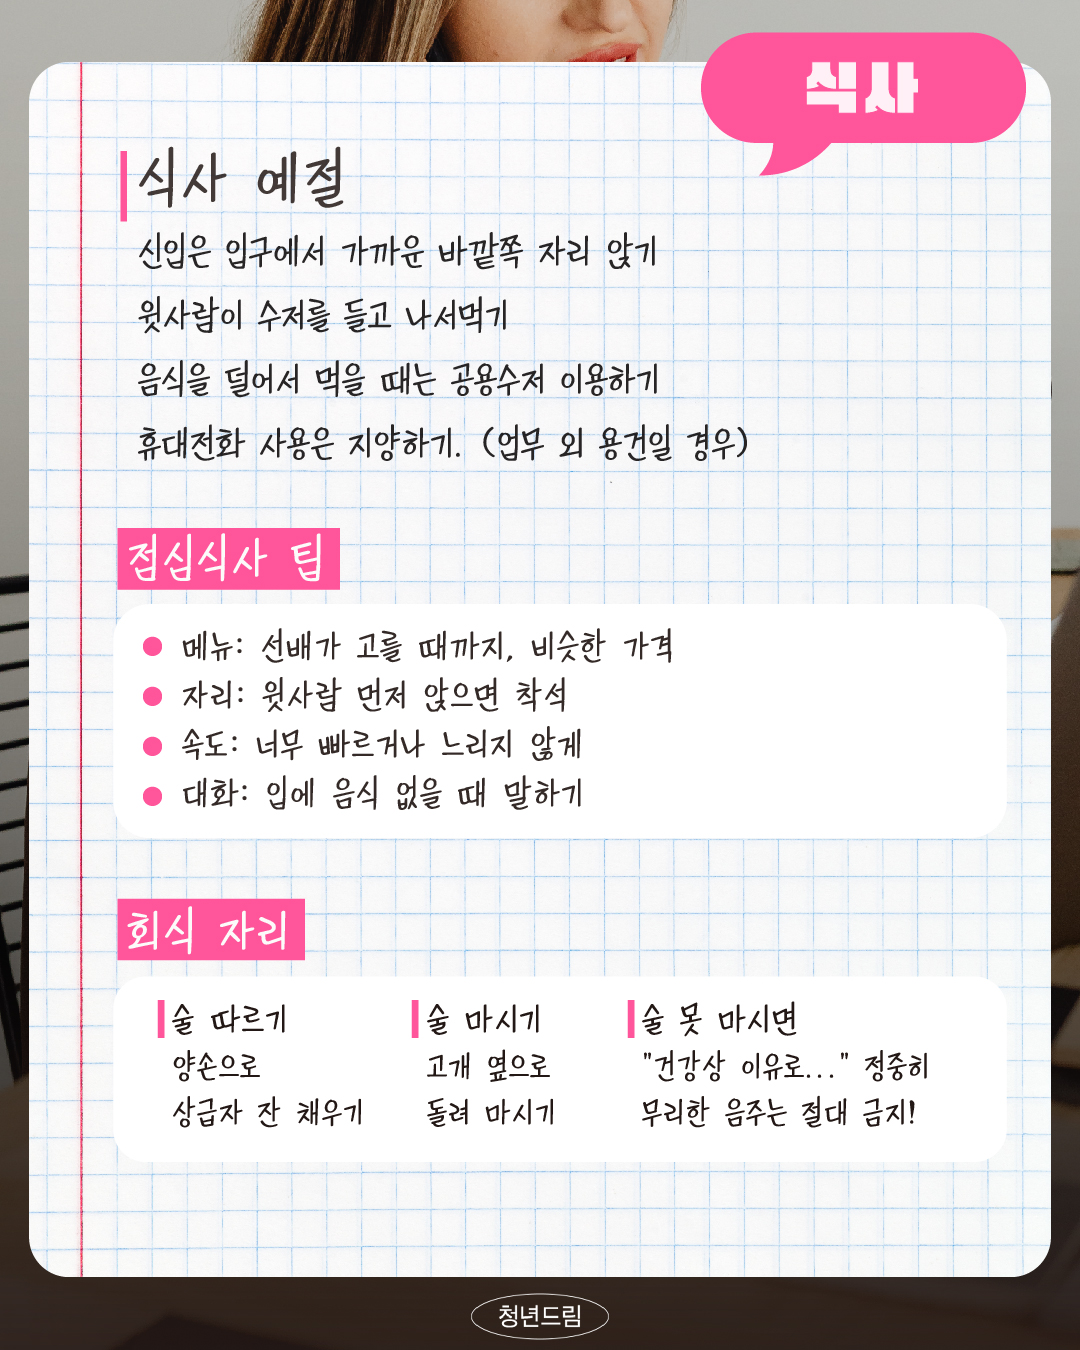 식사
식사 예절
신입은 입구에서 가까운 바깥쪽 자리 앉기
윗사람이 수저를 들고 나서먹기
음식을 덜어서 먹을 때는 공용수저 이용하기
휴대전화 사용은 지양하기. (업무 외 용건일 경우)
점심식사 팁
메뉴: 선배가 고를 때까지, 비슷한 가격
자리: 윗사람 먼저 앉으면 착석
속도: 너무 빠르거나 느리지 않게
대화: 입에 음식 없을 때 말하기
회식 자리
술 따르기
양손으로
상급자 잔 채우기
술 마시기
고개 옆으로
돌려 마시기
술 못 마시면
"건강상 이유로..." 정중히
무리한 음주는 절대 금지!
청년드림